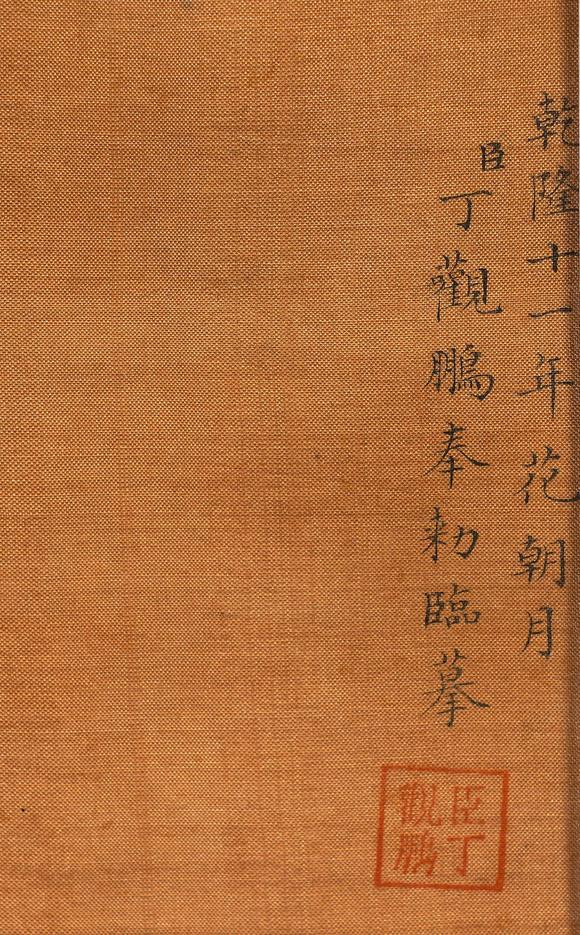 乾隆十一年花朝月
臣丁觀鵬奉勑臨摹
臣丁
觀鵬